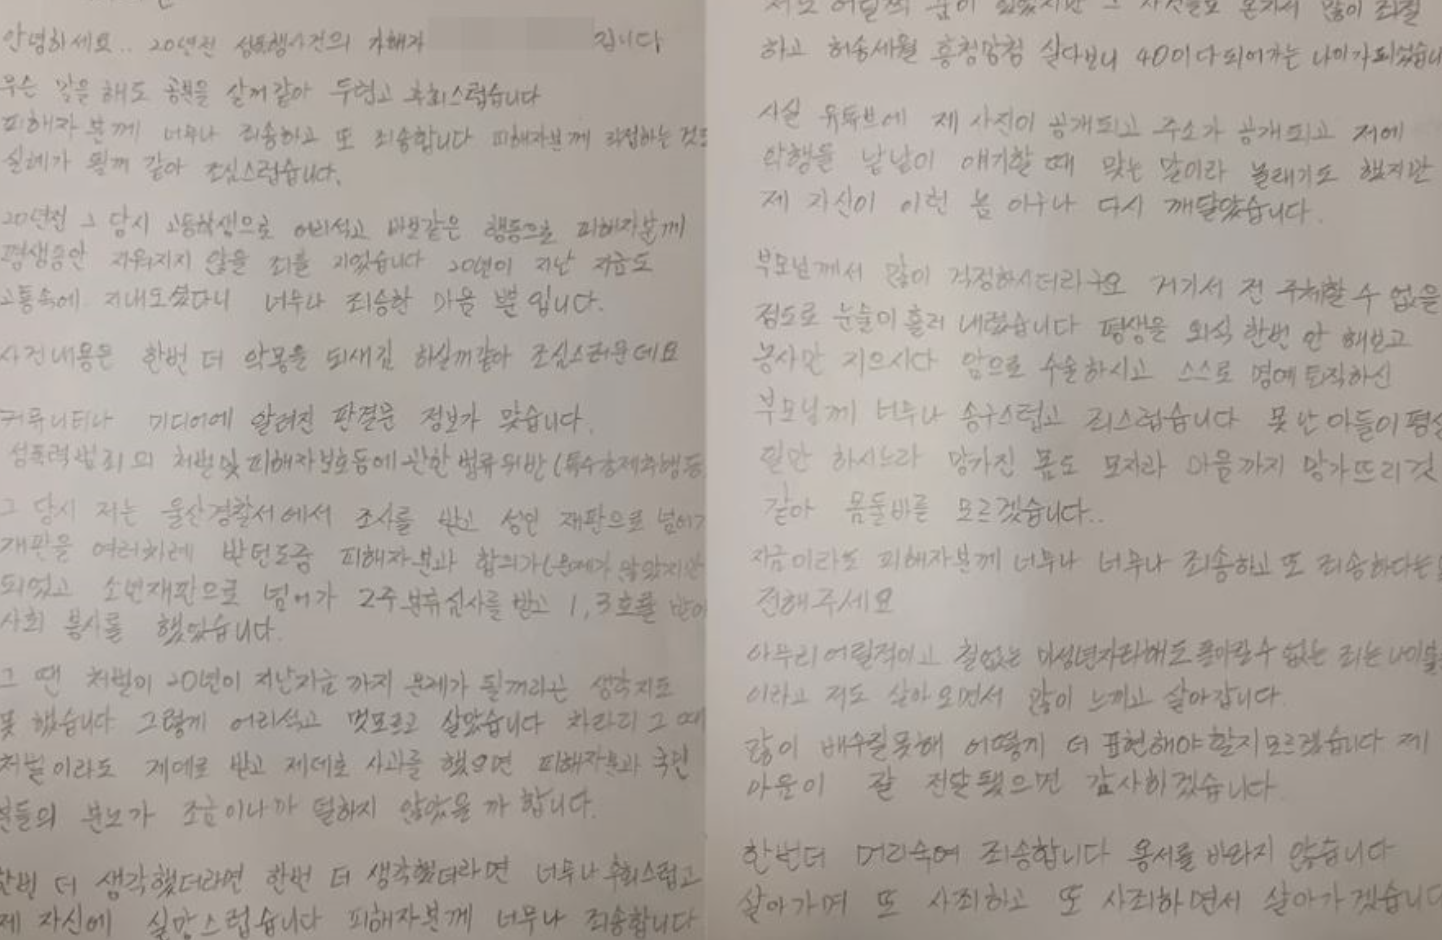 안녕하세요.. 20년전 성폭행사건의 가해자 입니다
무슨 말을 해도 공분을 살꺼같아 두렵고 후회스럽습니다
피해자분께 너무나 죄송하고 또 죄송합니다 피해자분께 직접하는 것도
실례가 될꺼 같아 조심스럽습니다.
20년전 그 당시 고등학생으로 어리석고 바보같은 행동으로 피해자분께
평생동안 지워지지 않을 죄를 지었습니다 20년이 지난 지금도
고통속에 지내오셨다니 너무나 죄송한 마음 뿐 입니다.
사건내용은 한번 더 악몽을 되새김 하실꺼같아 조심스러운데요
커뮤니티나 미디어에 알려진 판결문 정보가 맞습니다.
성폭력범죄의 처벌및피해자보호등에관한법률위반(특수강제추행등
그 당시 저는 울산경찰서에서 조사를 받고 성인 재판으로 넘어가
재판을 여러차례 받던도중 피해자분과 합의가(문제가 많았지만
되었고 소년재판으로 넘어가 2주분류심사를 받고 1,3호를 받아
사회 봉사를 했었습니다.
그 땐 처벌이 20년이 지난지금 까지 문제가 될꺼라는 생각지도
못 했습니다 그렇게 어리석고 멋모르고 살았습니다 차라리 그 때
처벌이라도 제데로 받고 제데로 사과를 했으면 피해자분과 국민
분들의 분노가 조금이나마 덜하지 않았을 까 합니다.
한번 더 생각했더라면 한번 더 생각했더라면 너무나 후회스럽고
제 자신에 실망스럽습니다 피해자분께 너무나 죄송합니다
저도 어릴적 꿈이 있었지만 그 사건들로 혼자서 많이 좌절
하고 허송세월 흥청망청 살다보니 40이다되어가는 나이가되었습니
사실 유튜브에 제 사진이 공개되고 주소가 공개되고 저에
악행을 낱낱이 얘기할 때 맞는 말이라 놀래기도 했지만
제 자신이 이런 놈 이구나 다시 깨달았습니다.
부모님께서 많이 걱정하시더라구요 거기서 전 주체할 수 없을
정도로 눈물이 흘러 내렸습니다 평생을 외식 한번 안 해보고
농사만 지으시다 암으로 수술하시고 스스로 명예퇴직하신
부모님께 너무나 송구스럽고 죄스럽습니다 못난 아들이 평생
일만 하시느라 망가진 몸도 모자라 마음까지 망가뜨리것
같아 몸둘바를 모르겠습니다..
지금이라도 피해자분께 너무나 너무나 죄송하고 또 죄송하다는
전해주세요
아무리어릴적이고 철없는 미성년자라해도 돌이킬수 없는 죄는 나이불문
이라고 저도 살아오면서 많이 느끼고 살아갑니다.
많이 배우질못해 어떻게 더 표현해야할지모르겠습니다 제
마음이 잘 전달됐으면 감사하겠습니다.
한번더 머리숙여 죄송합니다 용서를 바라지 않습니다
살아가며 또 사죄하고 또 사죄하면서 살아가겠습니다